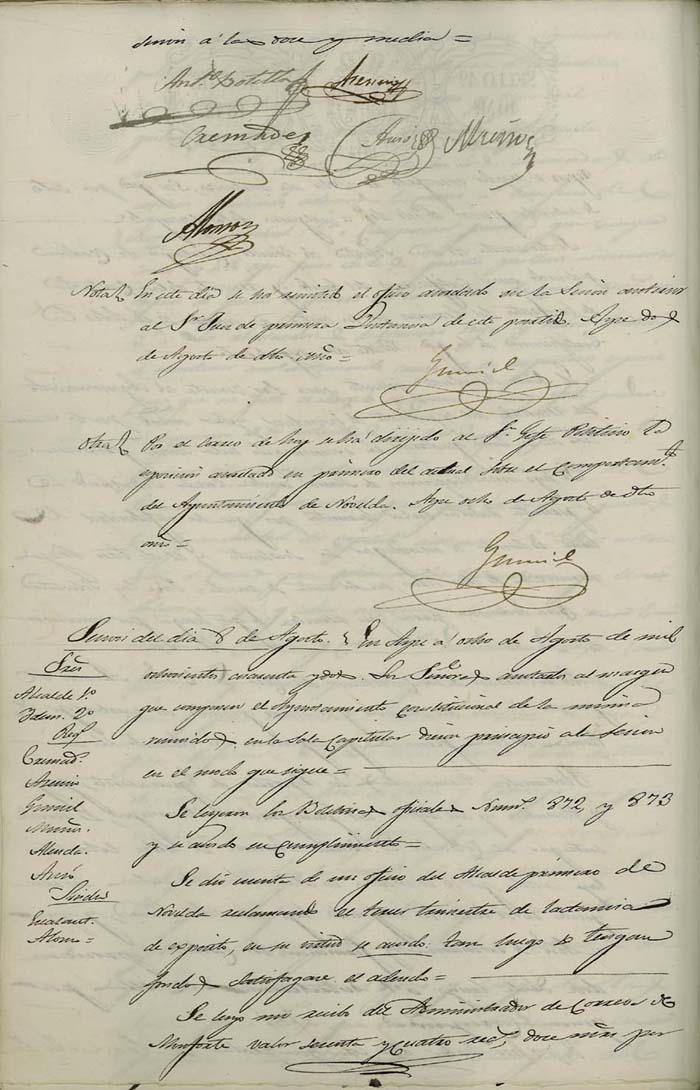 sion á las doce y media =
Anto. Botella Asencio
Cremades Azor Muños
Alonso
Nota En este dia se ha remitido el oficio acordado en la Sesion anterior
al Sr. Juez de primera Instancia de este partido. Aspe dos
de Agosto de dho año =
Gumiel
Otra Por el correo de hoy se há dirijido al Sr. Gefe Politico la
acordado en primero del actual sobre el
del Ayuntamiento de Novelda. Aspe ocho de Agosto de dho
año =
Gumiel
Sesion del dia 8 de Agosto. En Aspe á ocho de Agosto de mil
Sres ochocientos cuarenta y dos. Los Señores anotados al margen
Alcalde 1º que componen el Ayuntamiento constitucional de la misma
Idem. 2º reunidos en la Sala Capitular dieron principio a la Sesion
Regs en el modo que sigue =
Cremads.
Asencio
Gumiel Se leyeron los Boletines oficiales Nums. 872, y 873
Muñs. y se acordó su cumplimiento =
Alenda. Se dió cuenta de un oficio del Alcalde primero de
Novelda reclamando el tercer trimestre de lactancia
Sindcs de expósitos, en su virtud se acordó: tan luego se tengan
fondos satisfagase el adeudo =
Alonso =
Se leyo un recibo del Administrador de Correos de
Monforte valor sesenta y cuatro rs., doce mrs. por